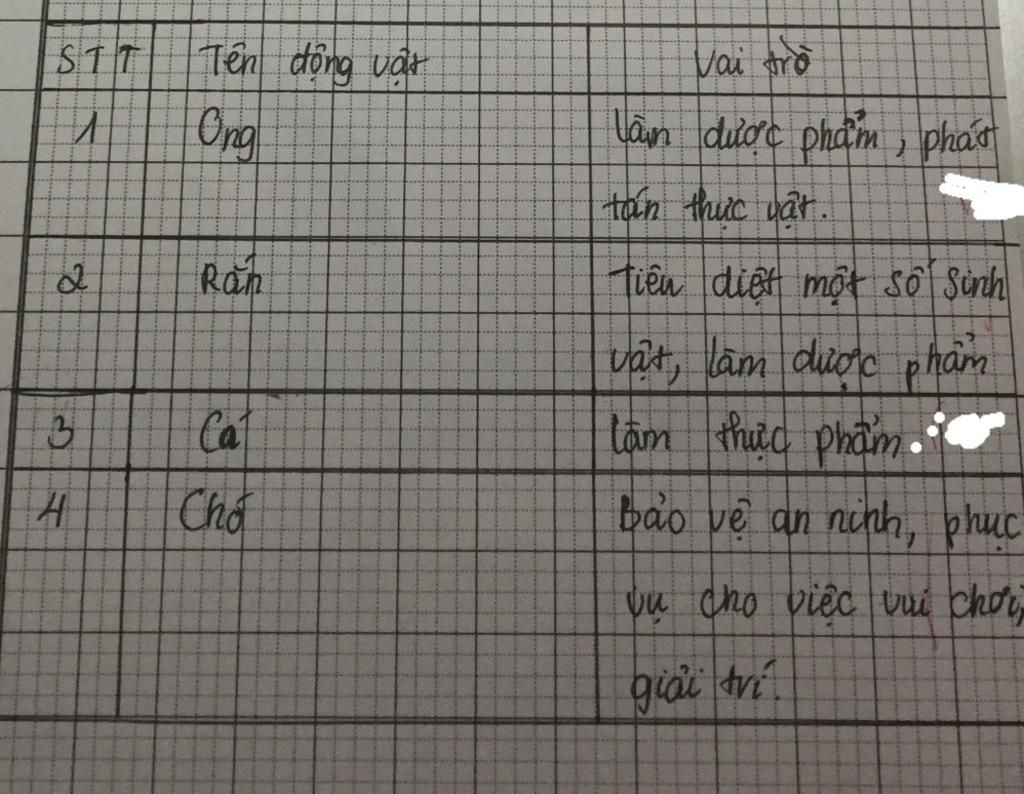 STT Tên động vật Vai trò
1 Ong làm dược phẩm, phát
tán thực vật.
2 Rắn Tiêu diệt một số sinh
vật, làm dược phẩm
3 Cá làm thực phẩm.
4 Chó Bảo vệ an ninh, phục
vụ cho việc vui chơi,
giải trí.